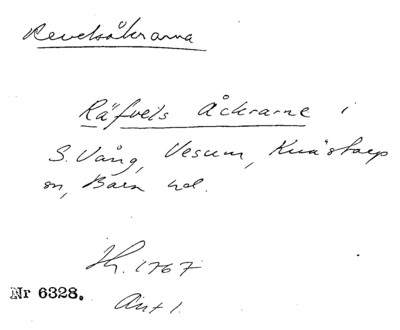 Revelsåkrarna
Räfvels Åckrarne i
S. Vång, Vesum, Knästorp
sn, Bara hd.
Sk. 1767
Nr 6328.
Akt 1.